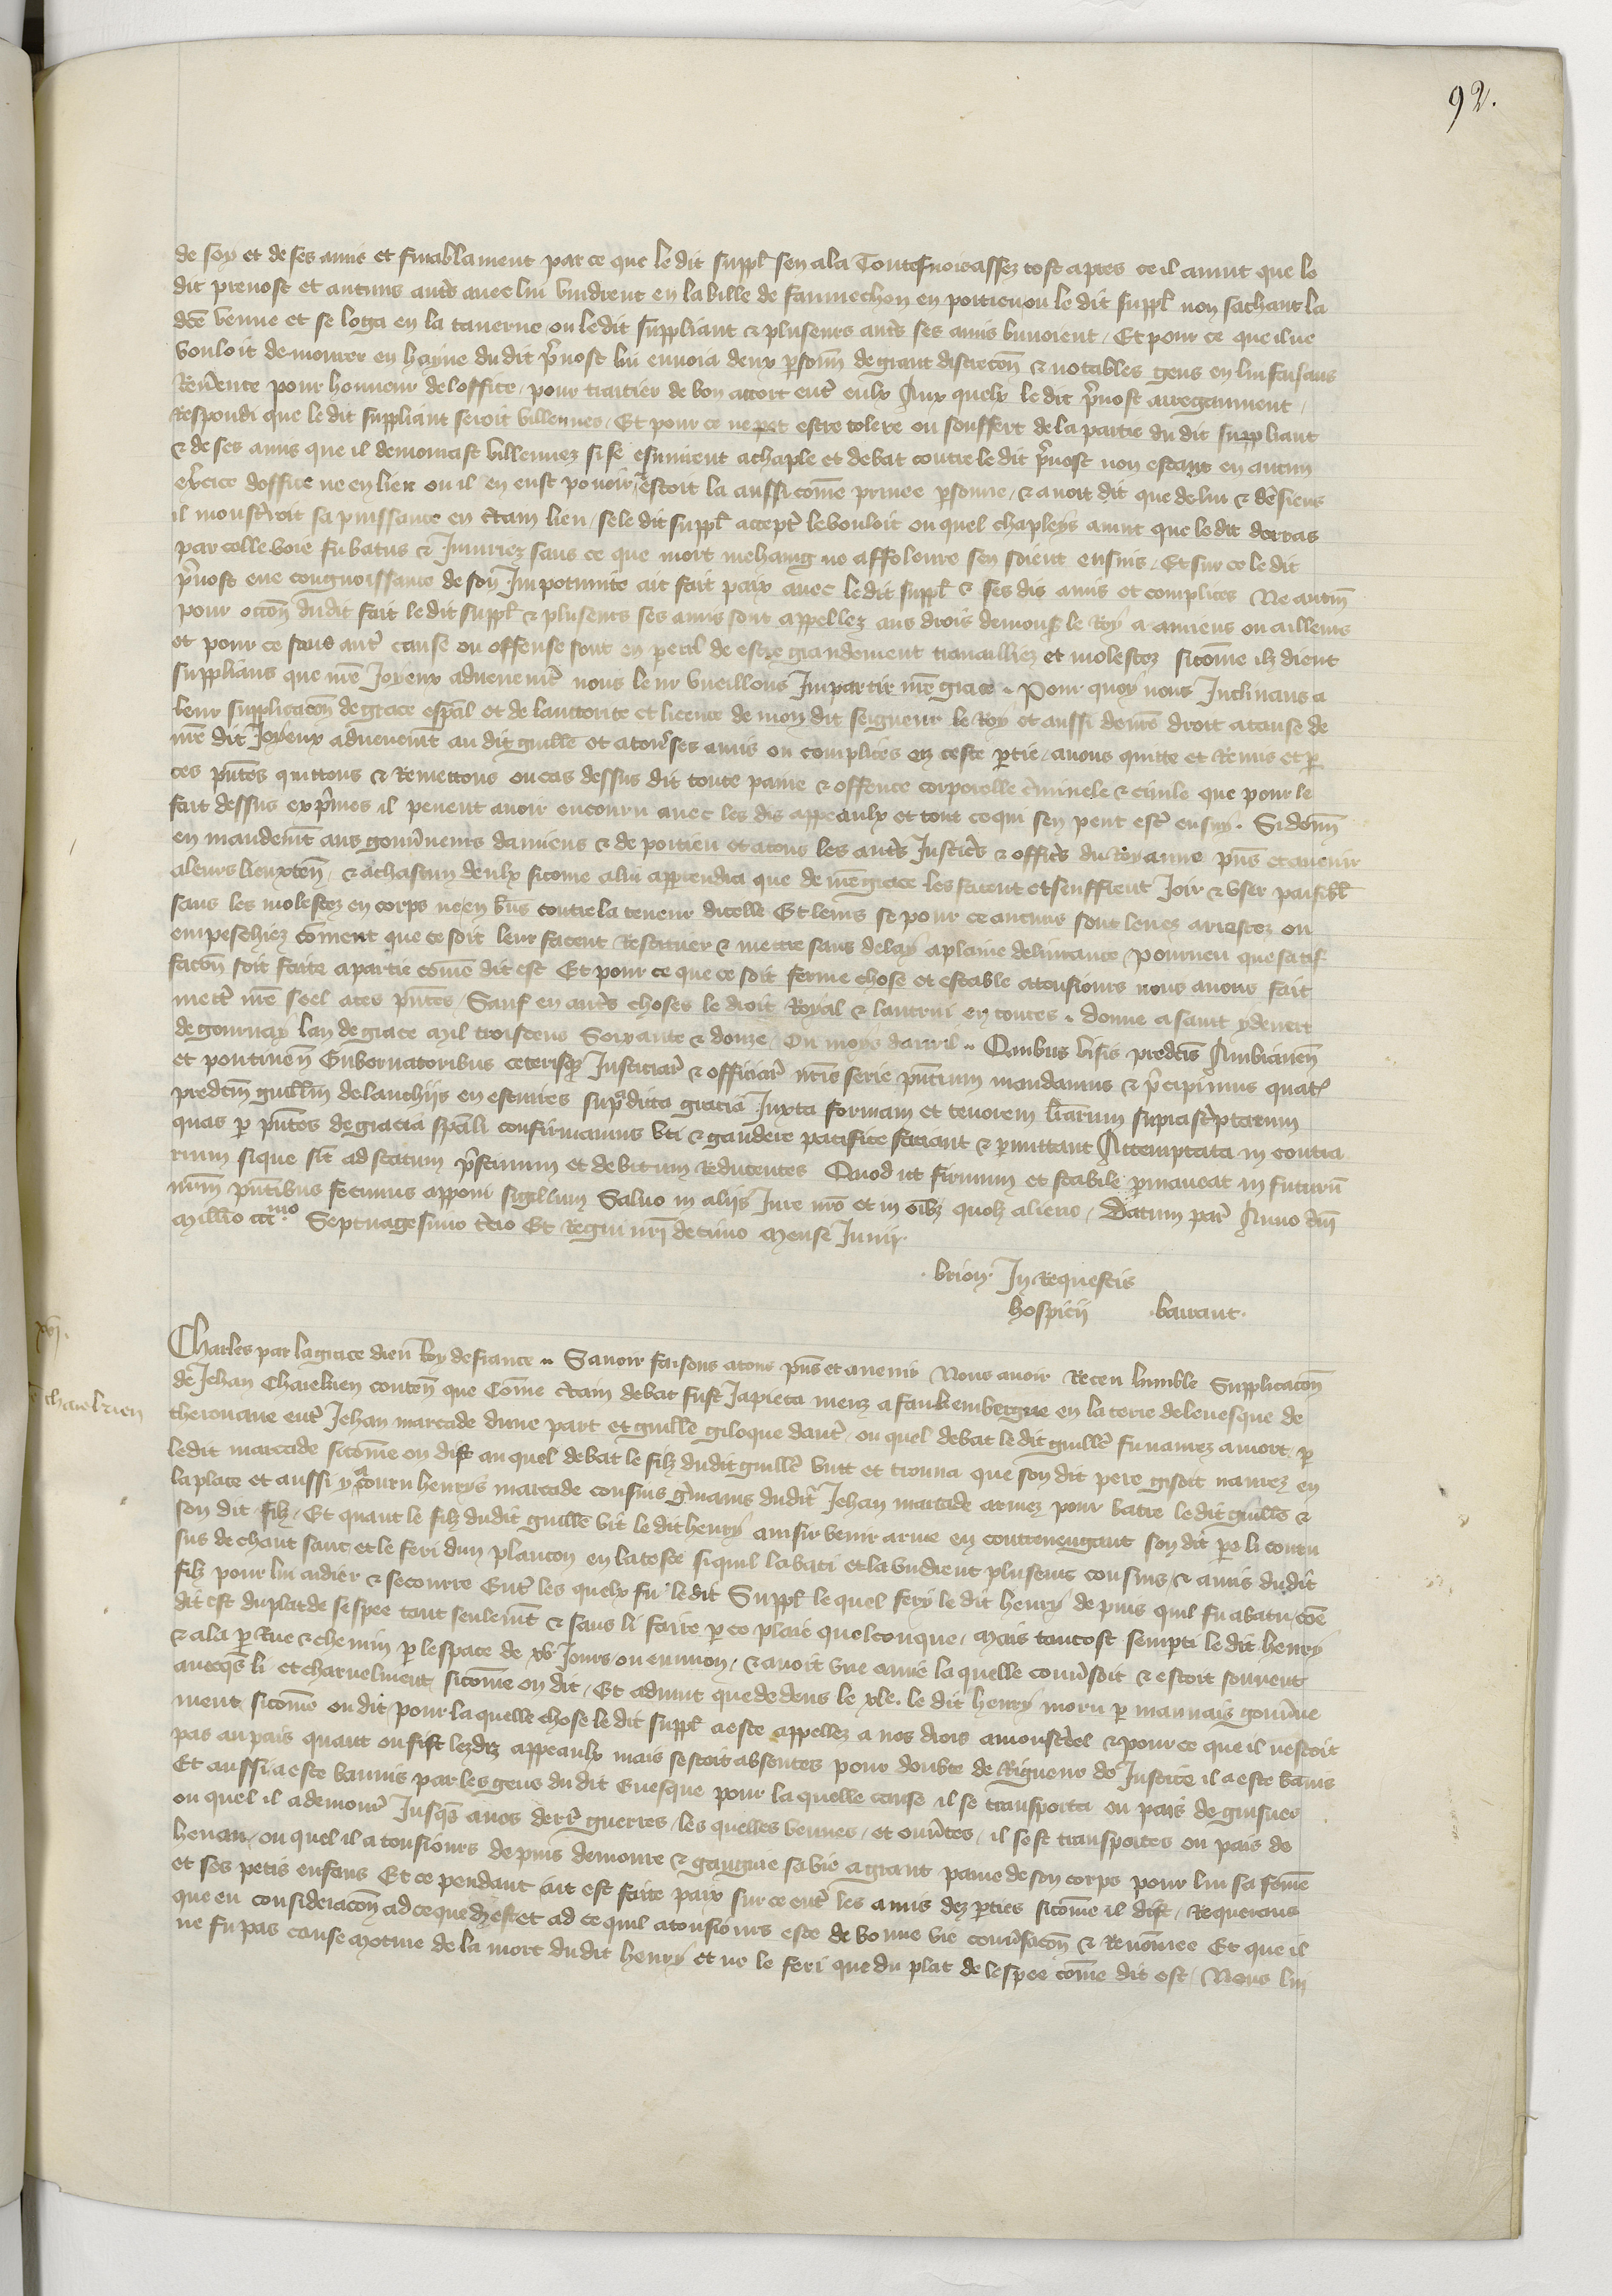 92.
de soy et de ses amis et finablament par ce que le dit suppl sen ala Toutesuoies assez tost apres ce il auint que le
dit preuost et aucuns autres auec lui vindrent en la ville de fammechon en pontieu ou le dit suppl non sachant la
dce venue et se loga en la tauerne ou ledit suppliant & pluseurs autres ses amis buuoient / Et pour ce que il ne
vouloit demourer en hayne du dit preuost lui enuoia deux personn de grant discrecon & notables gens en lui faisans
Reuerence pour honneur de loffice / pour traitier de bon accort entre eulx Aux quelx le dit preuost arregamment
Respondi que le dit suppliant seroit villennes / Et pour ce ne pot estre tolere ou souffert de la partie du dit suppliant
& de ses amis que il demourast villennez si se esmurent a chaple et debat contre le dit preuost non estant en aucun
exercice doffice ne en lieu ou il en eust pouoir / estoit la aussi come priuee personne / & auoit dit que de lui & des siens
il moustreroit sa puissance en certain lieu / se le dit suppl accepter le vouloit ou quel chapleys auint que le dit derras
par celle voie fu batus & Iniuriez sans ce que mort mehaing ne affoleure sen soient ensuis / Et sur ce le dit
preuost eue congnoissance de son Importunite ait fait paix auec le dit suppl & ses dis amis et complices Ne autm
pour occon du dit fait le dit suppl & pluseurs ses amis sont appellez aus drois de mons le Roy a amiens ou ailleurs
et pour ce sans autre cause ou offense sont en peril de estre grandement trauailliez et molestez sicome ilz dient
supplians que nre Ioyeux aduenemt nous leur vueillons Impartir nre grace / Pour quoy nous Inclinans a
leur supplicacon de grace espal et de lauctorite et licence de mon dit seigneur le Roy et aussi de nre droit a cause de
nre dit Ioyeux aduenemt au dit guille et a tous ses amis ou complices en ceste ptie / auons quitte et Remis et p
ces pntes quittons & Remettons ou cas dessus dit toute paine & offence corporelle criminele & ciuile que pour le
fait dessus exprimes il peuent auoir encouru auec les dis appeaulx et tout ce qui sen peut estre ensuy. Si donn
en mandemt aus gouuneurs damiens & de pontieu et a tous les autres Justiciers & officers du Royaume pns et auenir
a leurs lieuxten / & a chascun deulx sicome a lui appartendra que de nre grace les facent et seuffrent Joir & vser paisibl
sans les molestez en corps ne en bns contre la teneur dicelle Et leurs se pour ce aucuns sont leuez arrestez ou
empeschiez coment que ce soit leur facent Restituer & mettre sans delay a plaine deliurance / pourueu que satis
facon soit faite a partie come dit est Et pour ce que ce soit ferme chose et estable a tousiours nous auons fait
mettre nre seel a ces pntes / Sauf en autres choses le droit Royal & lautrui en toutes. donne a saint
de gournay lan de grace mil trois cens Soixante & douze / Ou moys dauril. Quibus lris predcis Ambianen
et pontiuen Gubernatoribus ceterisque Justiciar & officiar nris serie pntium mandamus & precipimus quat
predcm guillm de lanchijs en esturies supradicta gracia Juxta formam et tenorem lrarum suprascriptarum
quas p pntes de gracia spali confirmamus vti & gaudere pacifice faciant & pmittant Attemptata in contra
rium sique sint ad statum pristinum et debitum reducentes Quod ut firmum et stabile pmaneat in futuru
nrm pntibus fecimus apponi sigillum Saluo in aliis Jure nro et in oibz quolz alieno / Datum par Anno dni
Millo ccc mo Septuagesimo tercio Et Regni nri decimo Mense Junij.
brion. In Requestis
hospicii . barrant.
xvi.
charebrien
Charles par la grace dieu Roy de france.. Sauoir faisons a tous pns et auenir Nous auoir Receu lumble Supplicacon
de Jehan Charebrien conten que Come certain debat fust Japieca menz a faukembergue en la terre de leuesque de
therouane entre Jehan marcade dune part et guille giloque dautre / ou quel debat le dit guille fu naurez a mort / p
le dit marcade sicome on dist au quel debat le filz du dit guille vint et trouua que son dit pere gisoit naurez en
la place et aussi y acouru henrys marcade cousins germains du dit Jehan marcade armez pour batre le dit guille &
son dit filz / Et quant le filz du dit guille vit le dit henry ainsi venir arme en contreuengant son dit pe li couru
sus de chaut sanc et le feri dun plancon en la teste si quil labati et la vindrent pluseurs cousins / & amis du dit
filz pour lui aidier & secourre Entre les quelx fu le dit Suppl le quel fery le dit henry depuis quil fu abatu / coe
dit est du plat de sespee tant seulemt & sans li faire p ce plaie quelconque / Mais tantost sempti le dit henry
& ala p Rue & chemin p lespace de xv Jours ou enuiron / & auoit vne amie la quelle conuersoit & estoit souuent
auecques li et charnelment sicome on dit / Et aduint que dedens le xle. le dit henry moru p mauuaiz gouuerne
ment sicome on dit / pour la quelle chose le dit suppl a este appellez a nos drois a monstrel & pour ce que il nestoit
pas au pais quant on fist lezdiz appeaulx mais sestoit absentes pour doubte de Rigueur de Justice il a este banis
Et aussi a este bannis par les gens du dit Euesque pour la quelle cause il se transporta ou pais de guisnes
ou quel il a demoure Jusques a nos derr guerres / les quelles venues / et ouuertes / il sest transportes ou pais de
henau / ou quel il a tousiours depuis demoure & gaigne sa vie a grant paine de son corps pour lui sa feme
et ses petis enfans Et ce pendant ait est faite paix sur ce entre les amis dez pties sicome il dist / Requerans
que eu consideracon ad ce que dit est et ad ce quil a tousiours este de bonne vie conuersacon & Renomee Et que il
ne fu pas cause motiue de la mort du dit henry et ne le feri que du plat de lespee come dit est / Nous lui